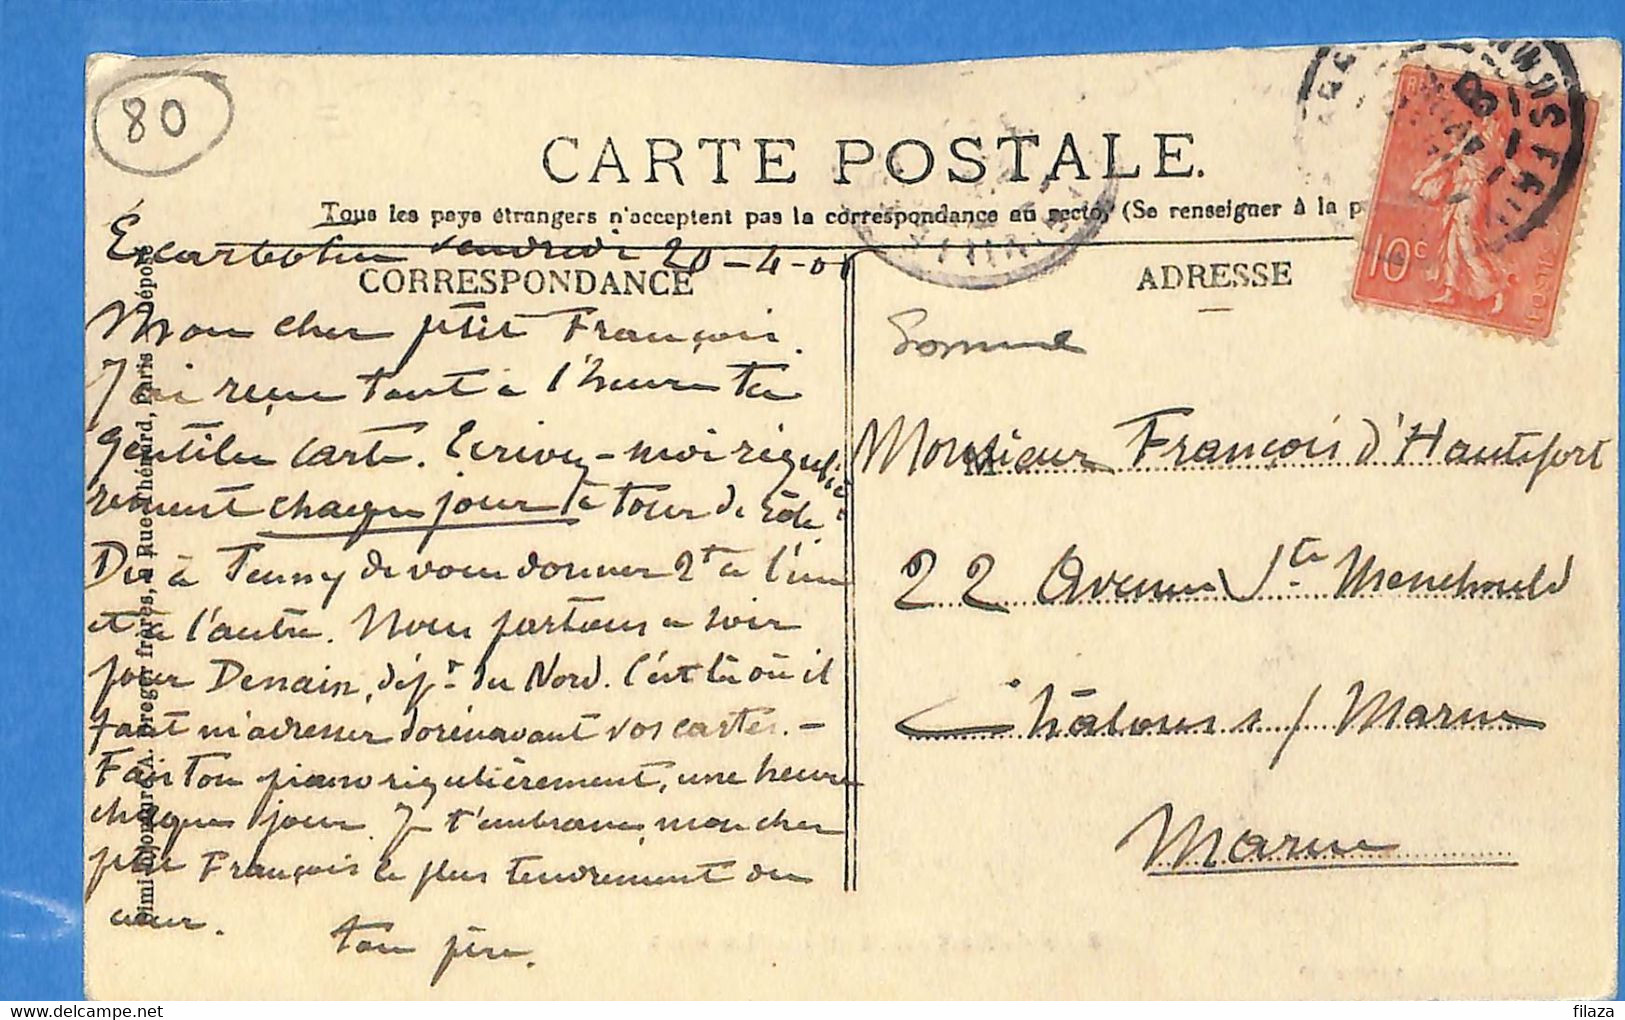 80
CARTE POSTALE.
Tous les pays étrangers n'acceptent pas la correspondance au recto, (Se renseigner à la p
10 c
POSTE
vendredi 20-4-06
CORRESPONDANCE
Mon cher ptit François.
J'ai reçu tout à l'heure ta
gentille carte. Ecrivez-moi réguliè-
rement chaque jour à tour de rôle
Dis à Jenny de vous donner 2t à l'un
et à l'autre. Nous partons ce soir
pour Denain, dépt du Nord. C'est là où il
faut m'adresser dorénavant vos cartes. -
Fais ton piano régulièrement, une heure
chaque jour. Je t'embrasse, mon cher
ptit François le plus tendrement du
cœur.
ton père.
ADRESSE
Somme
Monsieur François d'Hautefort
22 Avenue Ste Menehould
Châlons s/ Marne
Marne
delcampe.net
filaza